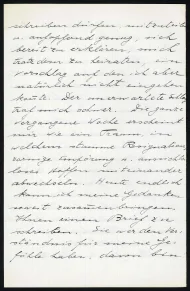 schreiben dürfen, mitleidig
u. aufopfernd genug, sich
bereit zu erklären, mich
trotzdem zu heiraten, ein
Vorschlag auf den ich aber
natürlich nicht eingehen
konnte. Der unerwartete
traf mich schwer. Die ganze
vergangene Woche erscheint
mir wie ein Traum, in
welchem stumme Resignation,
zornige Empörung u.
loses Hoffen miteinander
abwechseln. Heute endlich
kann ich meine Gedanken
soweit zusammenbringen,
Ihnen einen Brief zu
schreiben. Sie werden Ver-
ständnis für meine Ge-
fühle haben, davon bin